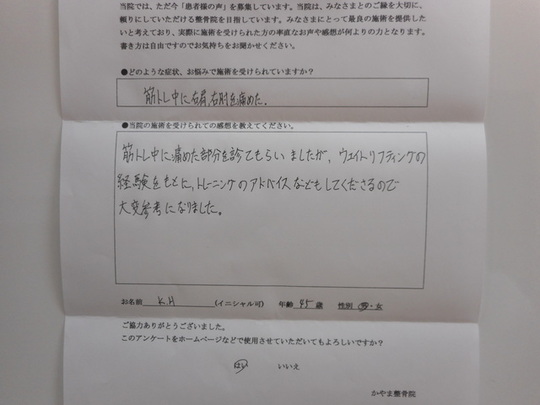 当院では、ただ今「患者様の声」を募集しています。当院は、みなさまとのご縁を大切に、
頼りにしていただける整骨院を目指しています。みなさまにとって最良の施術を提供した
いと考えており、実際に施術を受けられた方の率直なお声や感想が何よりの力となります。
書き方は自由ですのでお気持ちをお聞かせください。
●どのような症状、お悩みで施術を受けられていますか?
筋トレ中に右肩、右肘を痛めた。
●当院の施術を受けられての感想を教えてください。
筋トレ中に痛めた部分を診てもらいましたが、ウェイトリフティングの
経験をもとに、トレーニングのアドバイスなどもしてくださるので
大変参考になりました。
お名前 K.H (イニシャル可) 年齢 45 歳 性別 男・女
ご協力ありがとうございました。
このアンケートをホームページなどで使用させていただいてもよろしいですか?
はい いいえ
かやま整骨院